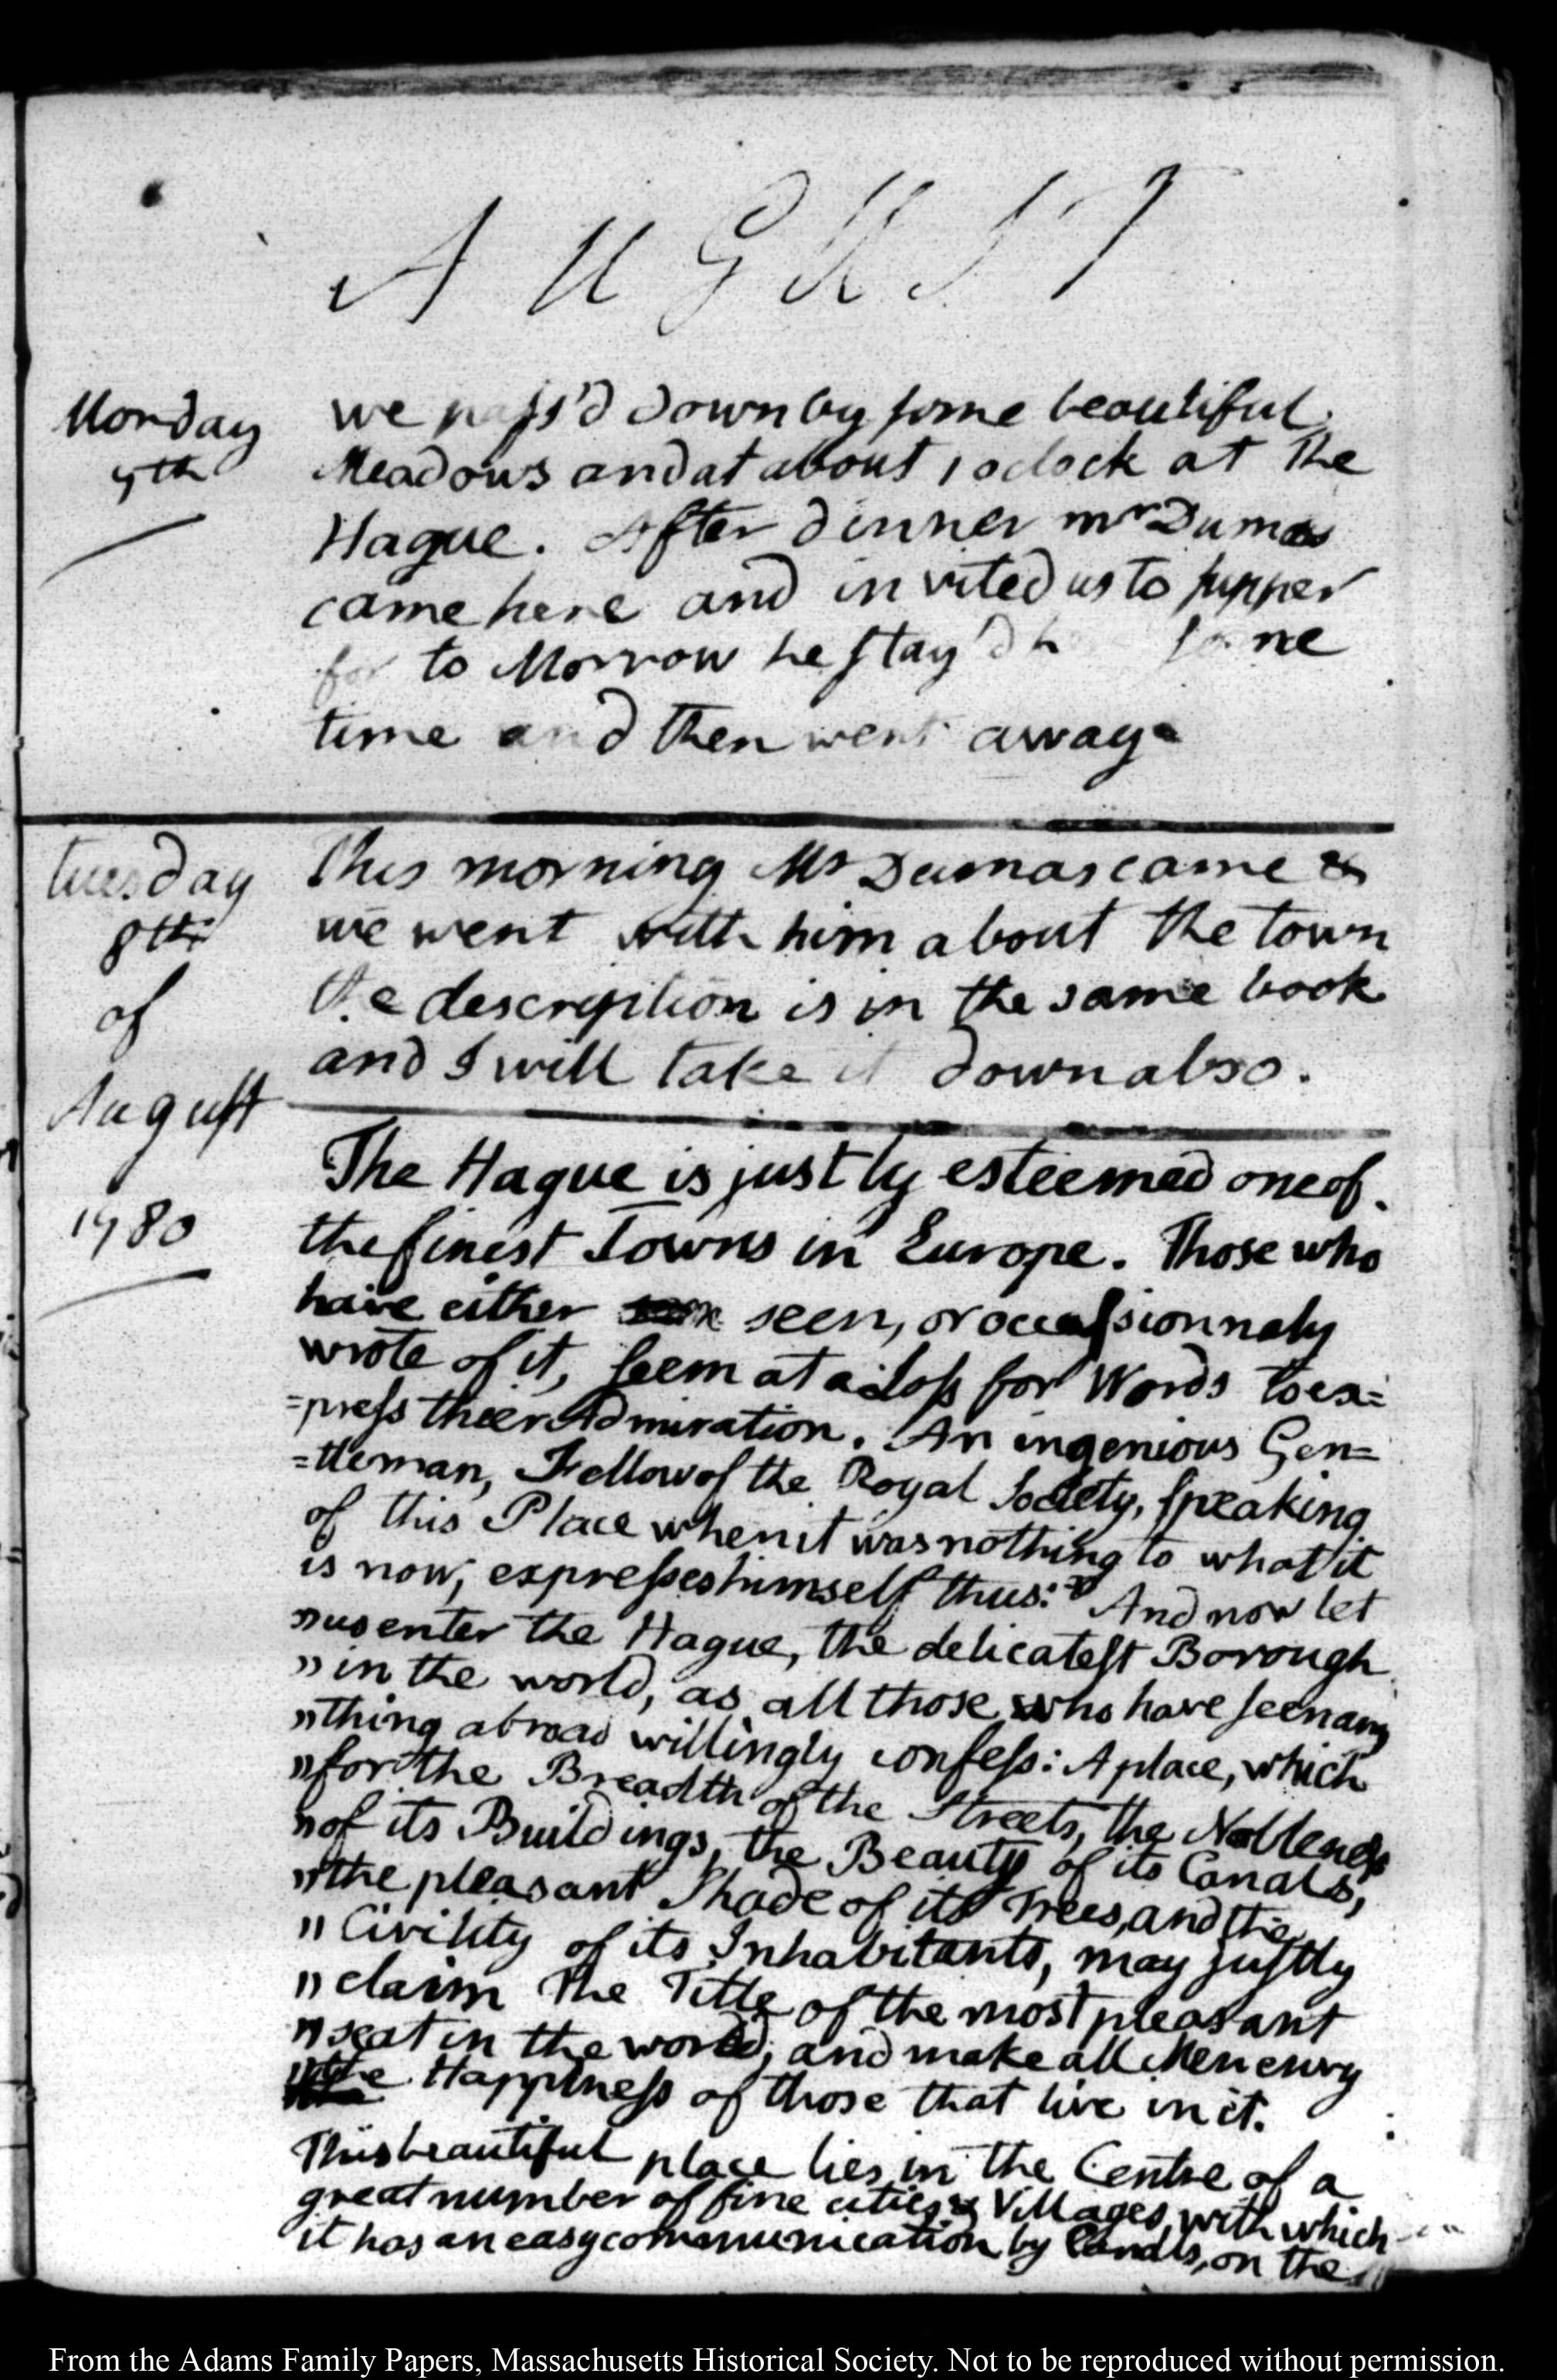 AUGUST
Monday
7th
we pass'd down by some beautiful
Meadows and at about 1 oclock at the
Hague. After dinner mr Dumas
came here and invited us to supper
for to Morrow he stay'd some
time and then went away
Tuesday
8th
of
August
1780
This morning Mr Dumas came &
we went with him about the town
the description is in the same book
and I will take it down also.
The Hague is justly esteemed one of
the finest Towns in Europe. Those who
have either seen, or occassionnaly
wrote of it, seem at a loss for Words to ex=
=press their Admiration. An ingenious Gen=
=tleman, Fellow of the Royal Society, speaking
of this Place when it was nothing to what it
is now, expresses himself thus: " And now let
"us enter the Hague, the delicatest Borough
"in the world, as all those who have seen any
"thing abroad willingly confess: A place, which
"for the Breadth of the Streets, the Nobleness
"of its Buildings, the Beauty of its Canals,
"the pleasant Shade of its Trees, and the
"Civility of its Inhabitants, may justly
"claim the Title of the most pleasant
"seat in the world, and make all Men envy
"the Happiness of those that live in it.
This beautiful place lies in the Centre of a
great number of fine cities & Villages, with which
it has an easy communication by Canals, on the
From the Adams Family Papers, Massachusetts Historical Society. Not to be reproduced without permission.